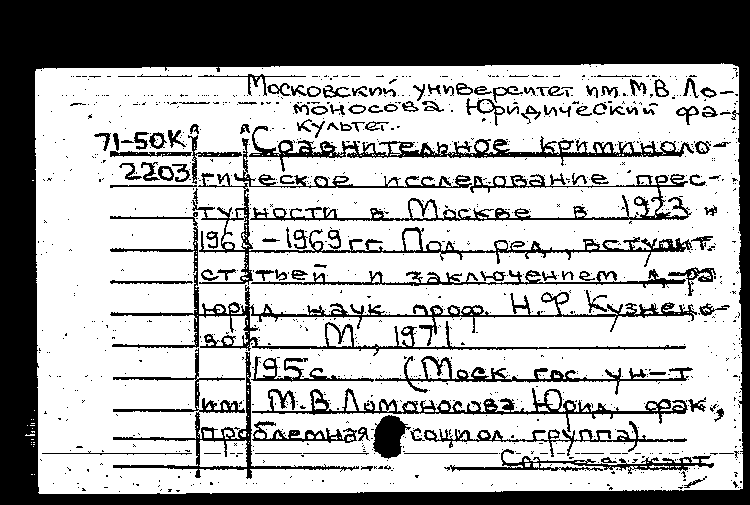 Московский университет им. М.В. Ло-
моносова. Юридический фа-
культет.
71-50К Сравнительное криминоло-
2203 гическое исследование прес-
тупности в Москве в 1923 и
1968-1969 гг. Под ред., вступит.
статьей и заключением д-ра
юрид. наук проф. Н.Ф. Кузнецо-
вой. М., 1971.
195с. (Моск. гос. ун-т
им. М.В. Ломоносова. Юрид. фак.,
проблемная социол. группа).
См